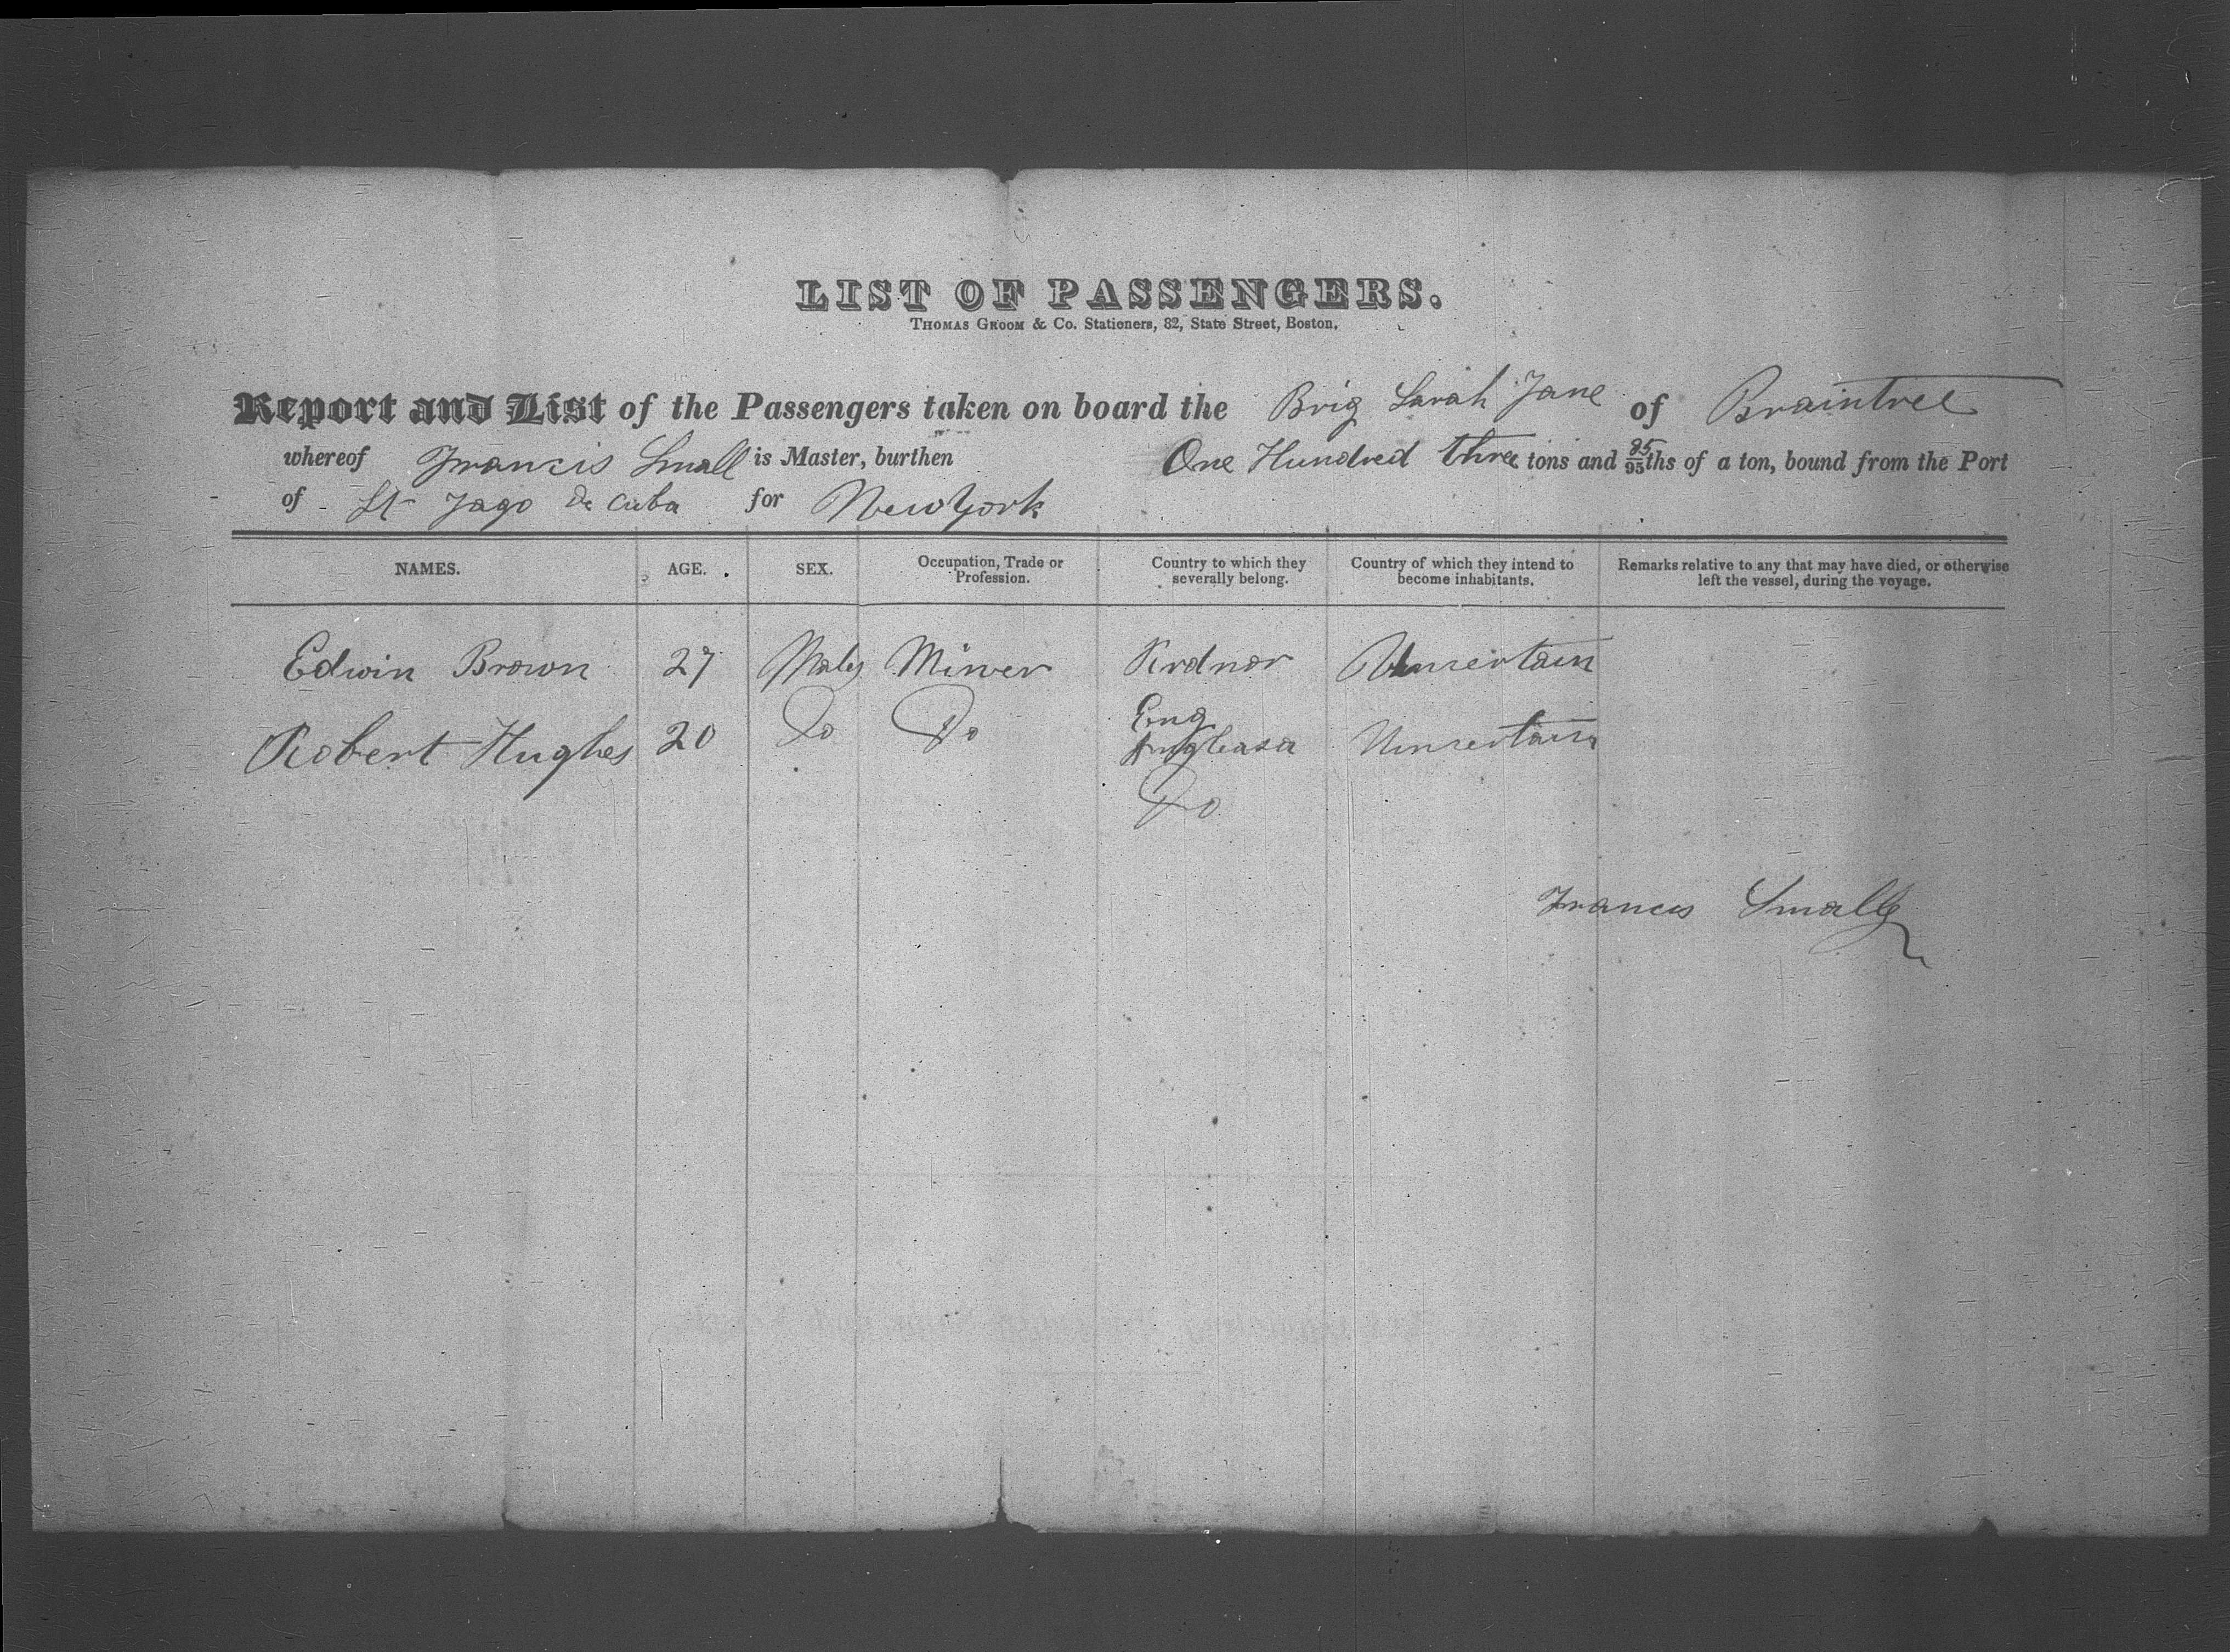 LIST OF PASSENGERS.
THOMAS GROOM & Co. Stationers, 82, State Street, Boston.
Report and List of the Passengers taken on board the Brig Sarah Jane of Braintree
whereof Francis Small is Master, burthen One Hundred three tons and 85/95ths of a ton, bound from the Port
of St Jago De Cuba for New York
NAMES. AGE. SEX. Occupation, Trade or Profession. Country to which they severally belong. Country of which they intend to become inhabitants. Remarks relative to any that may have died, or otherwise left the vessel, during the voyage.
Edwin Brown 27 Male Miner Rrdnor Uncertain
Eng
Robert Hughes 20 Do Do Angleasa Uncertain
Do
Francis Small